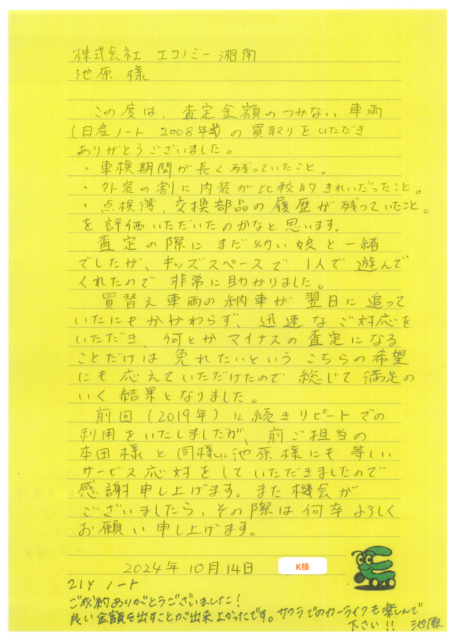 株式会社 エコノミー湘南
池原 様
この度は、査定金額のつかない車両
(日産ノート 2008年式)の買取りをいただき
ありがとうございました。
・車検期間が長く残っていたこと。
・外装の割に内装が比較的きれいだったこと。
・点検簿、交換部品の履歴が残っていたこと。
を評価いただいたのかなと思います。
査定の際にまだ幼い娘と一緒
でしたが、キッズスペースで1人で遊んで
くれたので非常に助かりました。
買替え車両の納車が翌日に迫って
いたにもかかわらず、迅速なご対応を
いただき、何とかマイナスの査定になる
ことだけは免れたいというこちらの希望
にも応えていただけたので総じて満足の
いく結果となりました。
前回(2019年)に続きリピートでの
利用をいたしましたが、前ご担当の
本田様と同様に池原様にも等しい
サービス応対をしていただきましたので
感謝申し上げます。また機会が
ございましたら、その際は何卒よろしく
お願い申し上げます。
2024年10月14日
K様
ノート
ご成約ありがとうございました!
良い金額を出すことが出来よかったです。サクラでのカーライフも楽しんで
下さい!! 池原